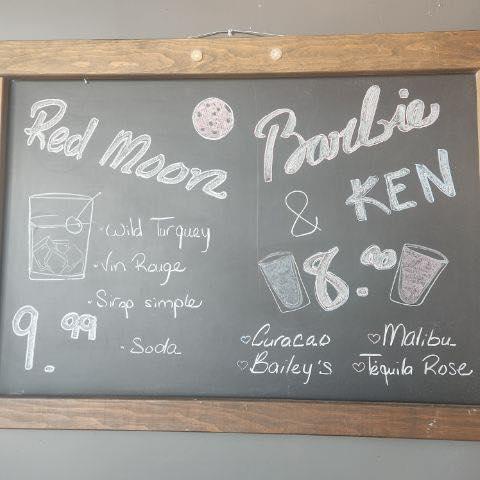 Red Moon
· Wild Turquey
· Vin Rouge
· Sirop simple
· Soda
9.99
Barbie
& KEN
8.00
♡ Curacao
♡ Bailey's
♡ Malibu
♡ Téquila Rose